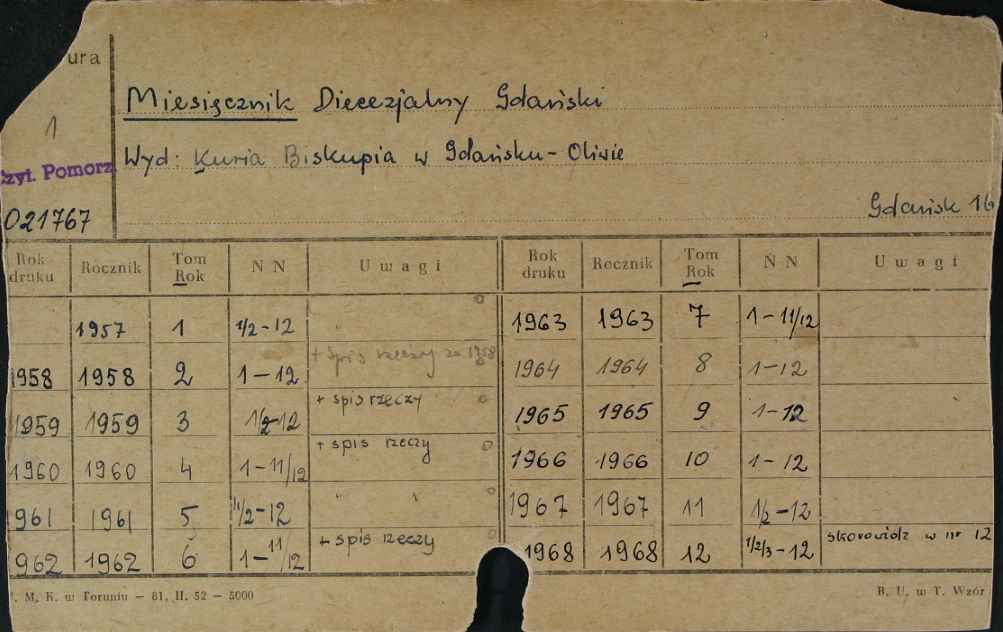 ura
Miesięcznik Diecezjalny Gdański
1
Wyd: Kuria Biskupia w Gdańsku-Oliwie
Czyt. Pomorz
Gdańsk 16
021767
Rok druku Rocznik Tom Rok N N Uwagi Rok druku Rocznik Tom Rok N N Uwagi
1957 1 1/2-12 1963 1963 7 1-11/12
1958 1958 2 1-12 + spis rzeczy za 1958 1964 1964 8 1-12
1959 1959 3 1/2-12 + spis rzeczy 1965 1965 9 1-12
1960 1960 4 1-11/12 + spis rzeczy 1966 1966 10 1-12
1961 1961 5 1/2-12 " " 1967 1967 11 1/2-12
962 1962 6 1-11/12 + spis rzeczy 1968 1968 12 1/2/3-12 skorowidz w nr 12
M. K. w Toruniu — 81. II. 52 — 5000 B. U. w T. Wzór